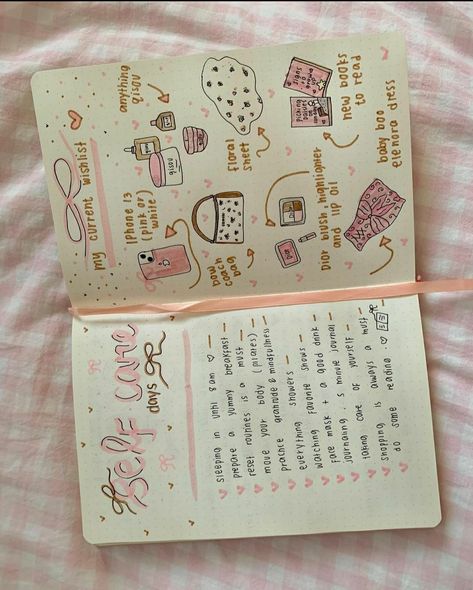 self care
days
sleeping in until 8am ♡ –
prepare a yummy breakfast –
reset routines is a must –
move your body (pilates) –
practice gratitude & mindfulness –
everything showers –
watching favorite shows –
face mask + a good drink –
journaling, 5 minute journal –
taking care of yourself –
shopping is always a must –
do some reading :
my current wishlist
anything
gisou
gisou
iphone 13
(pink or
white)
floral
sheet
bow
coach
bag
new books
to read
picking
daisies
on
sundays
dior blush, highlighter
and lip oil
Dior
baby boo
elenora dress